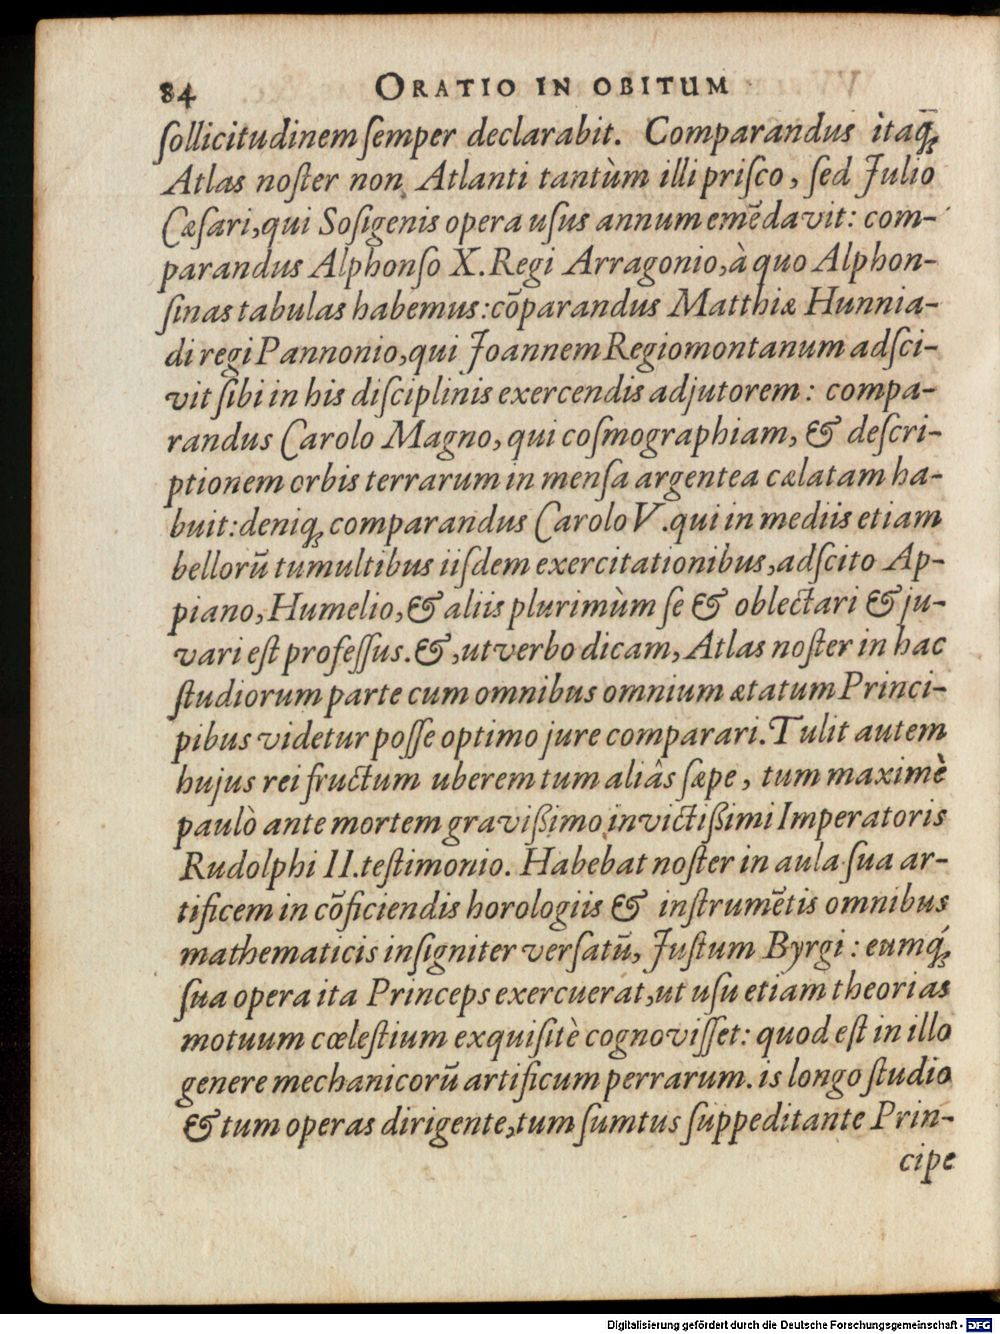 84 ORATIO IN OBITUM
ſollicitudinem ſemper declarabit. Comparandus itaq̃ꝫ
Atlas noſter non Atlanti tantùm illi priſco, ſed Julio
Cæſari, qui Soſigenis opera uſus annum emẽdavit: com-
parandus Alphonſo X. Regi Arragonio, à quo Alphon-
ſinas tabulas habemus: cõparandus Matthiæ Hunnia-
di regi Pannonio, qui Joannem Regiomontanum adſci-
vit ſibi in his diſciplinis exercendis adjutorem: compa-
randus Carolo Magno, qui coſmographiam, & deſcri-
ptionem orbis terrarum in menſa argentea cælatam ha-
buit: deniqꝫ comparandus Carolo V. qui in mediis etiam
bellorũ tumultibus iiſdem exercitationibus, adſcito Ap-
piano, Humelio, & aliis plurimùm ſe & oblectari & ju-
vari eſt profeſſus. &, ut verbo dicam, Atlas noſter in hac
ſtudiorum parte cum omnibus omnium ætatum Princi-
pibus videtur poſſe optimo jure comparari. Tulit autem
hujus rei fructum uberem tum aliâs ſæpe, tum maximè
paulò ante mortem graviſſimo invictiſſimi Imperatoris
Rudolphi II. teſtimonio. Habebat noſter in aula ſua ar-
tificem in cõficiendis horologiis & inſtrumẽtis omnibus
mathematicis inſigniter verſatũ, Juſtum Byrgi: eumq́ꝫ
ſua opera ita Princeps exercuerat, ut uſu etiam theorias
motuum cœleſtium exquiſitè cognoviſſet: quod eſt in illo
genere mechanicorũ artificum perrarum. is longo ſtudio
& tum operas dirigente, tum ſumtus ſuppeditante Prin-
cipe
Digitalisierung gefördert durch die Deutsche Forschungsgemeinschaft - DFG